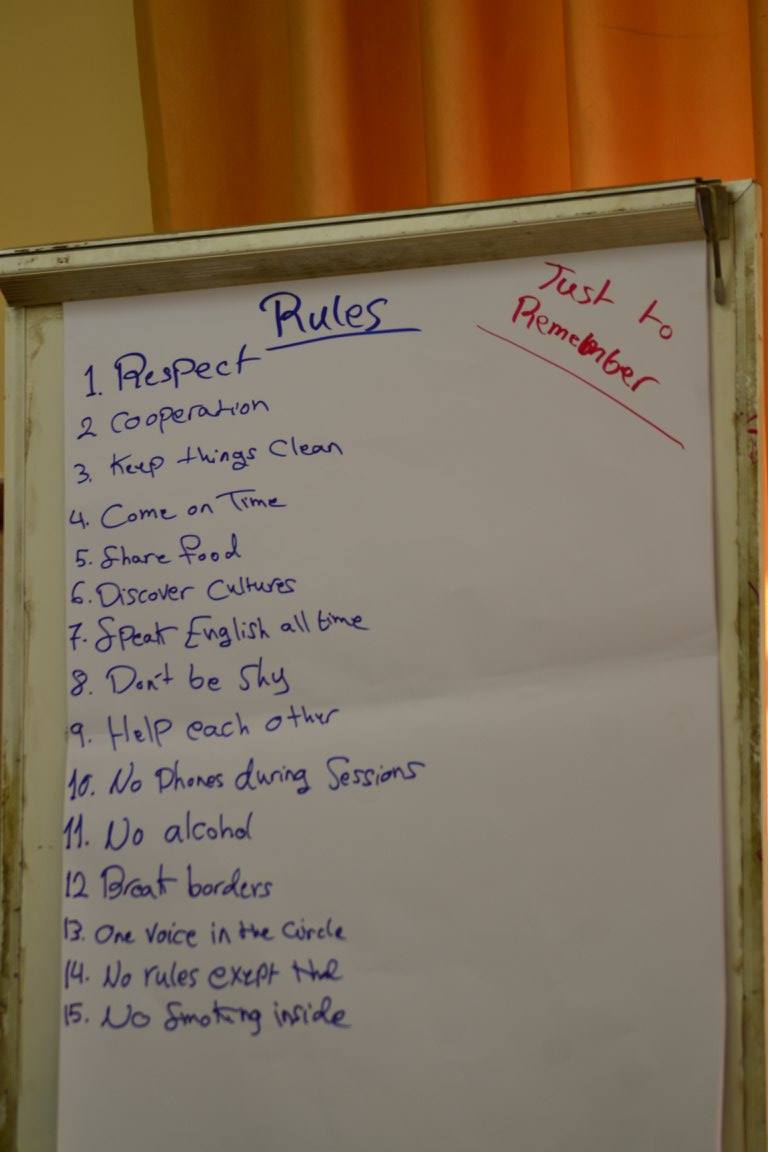 Rules
Just to
Remember
1. Respect
2 Cooperation
3. Keep things Clean
4. Come on Time
5. Share food
6. Discover Cultures
7. Speak English all time
8. Don't be Shy
9. Help each other
10. No Phones during Sessions
11. No alcohol
12 Break borders
13. One voice in the Circle
14. No rules exept
15. No Smoking inside